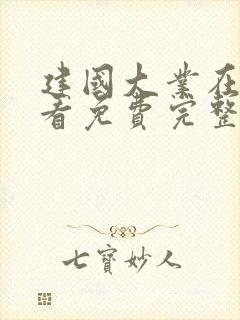 建國大業在
看免費完整
七寶妙人